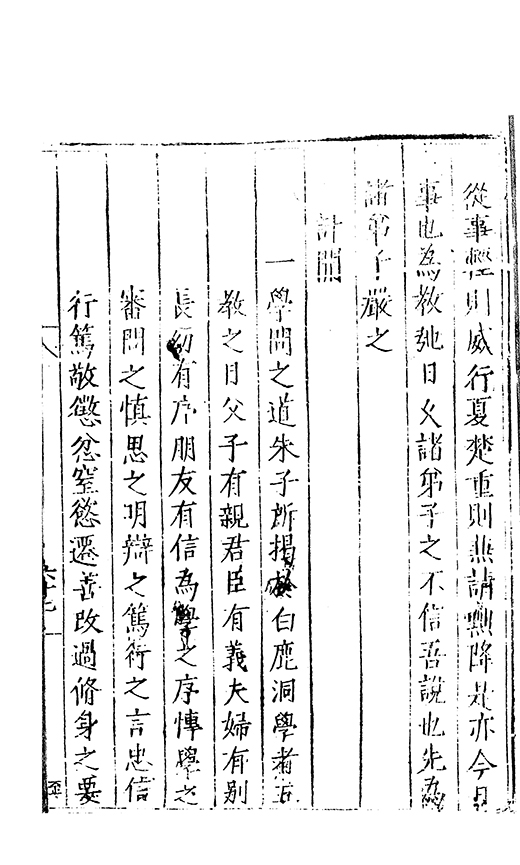 從事輕則威行夏楚重則無請黜降此亦今日
事也為教弛日久諸弟子之不信吾說也先為
諸弟子嚴之
計開
一學問之道朱子所揭於白鹿洞學者五
教之目父子有親君臣有義夫婦有別
長幼有序朋友有信為學之序博學之
審問之慎思之明辯之篤行之言忠信
行篤敬懲忿窒慾遷善改過脩身之要